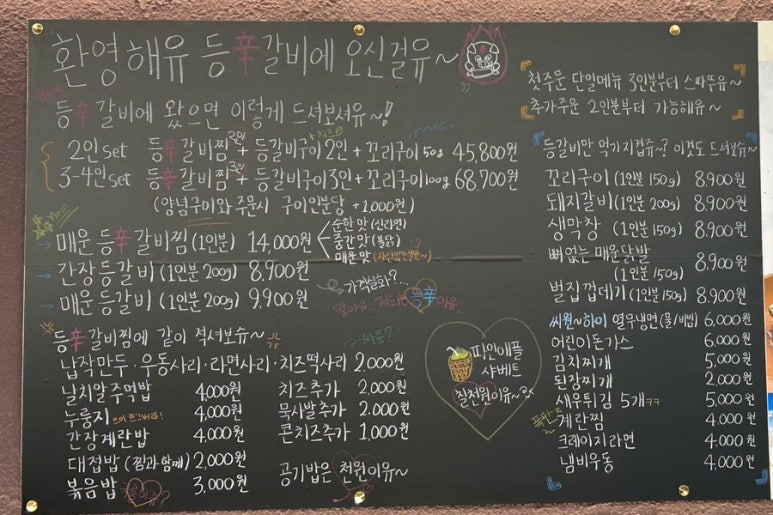 환영해유 등辛갈비에 오신걸유~
등辛갈비에 왔으면 이렇게 드셔보셔유~!
2인set 등辛갈비찜 2인 + 등갈비구이 2인 + 꼬리구이 50g 45,800원
3-4인set 등辛갈비찜 3인 + 등갈비구이 3인 + 꼬리구이 100g 68,700원
(양념구이와 주문시 구이인분당 +1,000원)
매운 등辛갈비찜 (1인분) 14,000원
순한 맛 (신라면)
중간 맛 (불닭)
매운 맛 (자신있는분만~)
간장 등갈비 (1인분 200g) 8,900원
매운 등갈비 (1인분 200g) 9,900원
가격실화?...
등辛갈비찜에 같이 적셔보슈~
납작만두·우동사리·라면사리·치즈떡사리 2,000원
날치알주먹밥 4,000원
누룽지 4,000원
간장계란밥 4,000원
대접밥 (찜과 함께) 2,000원
볶음밥 3,000원
치즈추가 2,000원
묵사발추가 2,000원
콘치즈추가 1,000원
공기밥은 천원이유~
파인애플
샤베트
칠천원이유~
첫주문 단일메뉴 3인분부터 스따뚜유~
추가주문 2인분부터 가능해유~
등갈비만 먹기 지겹쥬~? 이것도 드셔보슈~
꼬리구이 (1인분 150g) 8,900원
돼지갈비 (1인분 200g) 8,900원
생막창 (1인분 150g) 8,900원
뼈없는 매운닭발
(1인분 150g) 8,900원
벌집껍데기 (1인분 150g) 8,900원
씨원~하이 열무냉면 (물/비빔) 6,000원
어린이돈가스 6,000원
김치찌개 5,000원
된장찌개 2,000원
새우튀김 5개 ㅋㅋ 5,000원
계란찜 4,000원
크레이지라면 4,000원
냄비우동 4,000원